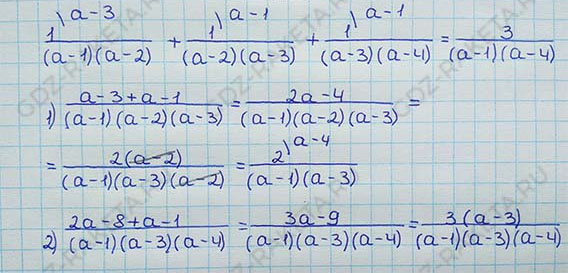 1\a-3 / (a-1)(a-2) + 1\a-1 / (a-2)(a-3) + 1\a-1 / (a-3)(a-4) = 3 / (a-1)(a-4)
1) a-3+a-1 / (a-1)(a-2)(a-3) = 2a-4 / (a-1)(a-2)(a-3) =
= 2(a-2) / (a-1)(a-3)(a-2) = 2\a-4 / (a-1)(a-3)
2) 2a-8+a-1 / (a-1)(a-3)(a-4) = 3a-9 / (a-1)(a-3)(a-4) = 3(a-3) / (a-1)(a-3)(a-4)